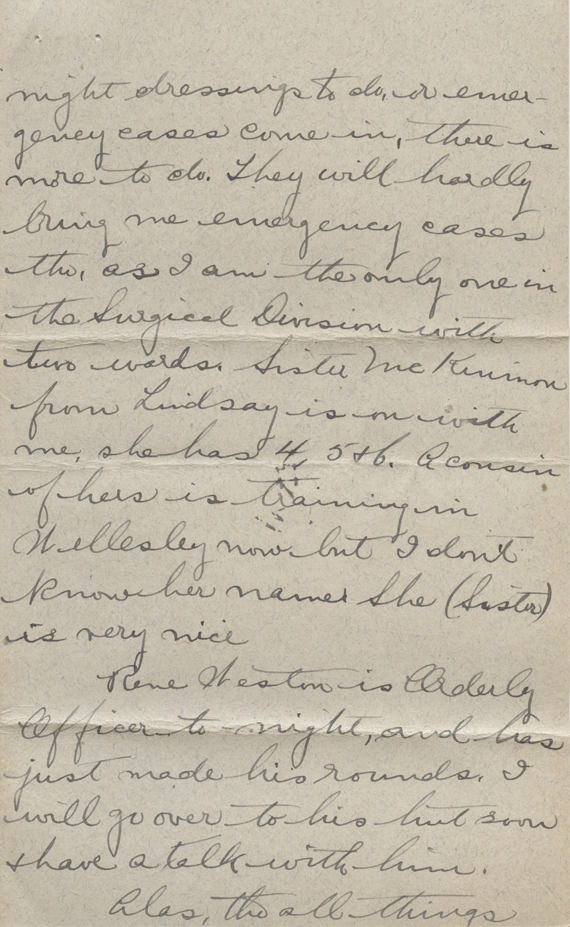 night dressings to do, or emer-
gency cases come in, there is
more to do. They will hardly
bring me emergency cases
tho, as I am the only one in
the Surgical Division with
two wards. Sister McKinnon
from Lindsay is on with
me, she has 4, 5 & 6. A cousin
of hers is training in
Wellesley now but I don't
know her name. She (Sister)
is very nice
Rene Weston is Orderly
Officer to-night, and has
just made his rounds. I
will go over to his hut soon
& have a talk with him.
Alas, tho all things